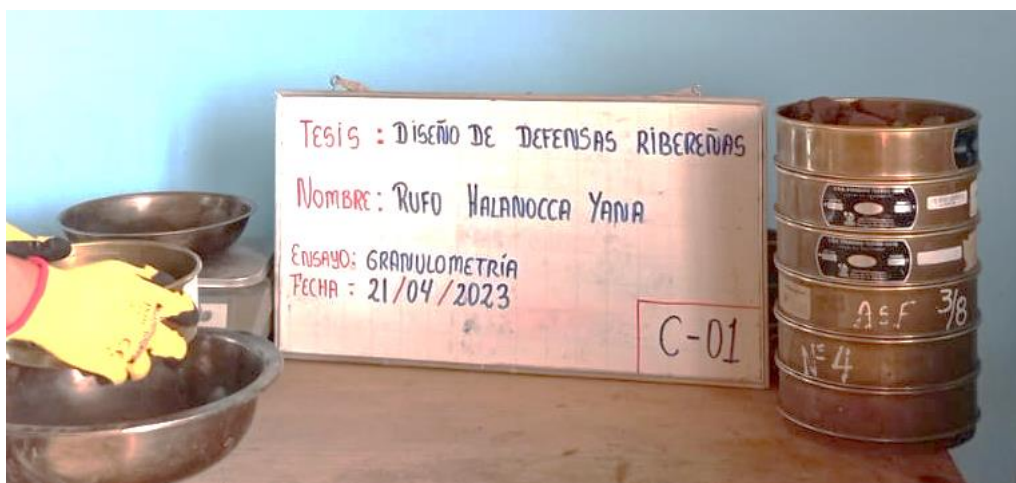 TESIS : DISEÑO DE DEFENSAS RIBEREÑAS
NOMBRE : RUFO HALANOCCA YANA
ENSAYO: GRANULOMETRÍA
FECHA : 21/04/2023
C-01
ASF 3/8
Nº 4